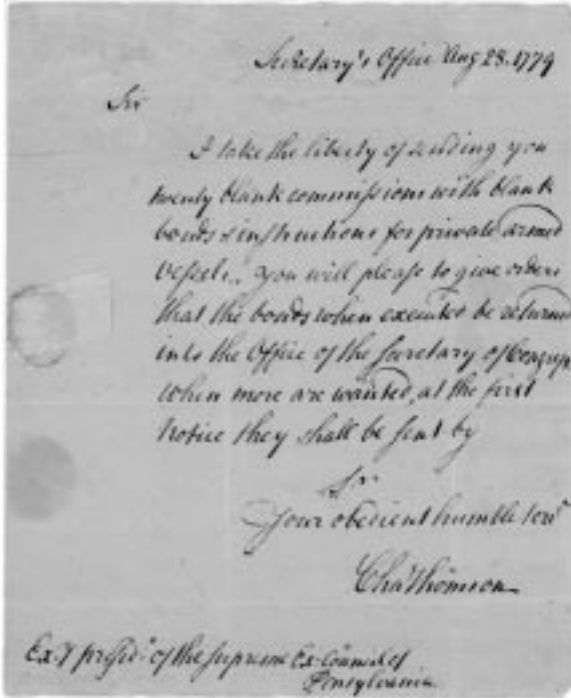 Secretary's Office Aug 28. 1779
Sir
I take the liberty of sending you
twenty blank commissions with blank
bonds & instructions for private armed
vessels. You will please to give orders
that the bonds when executed be returned
into the Office of the Secretary of Congress
When more are wanted, at the first
Notice they shall be sent by
Sir
Your obedient humble serv
Cha Thomson
presid. of the supreme Ex. Council of
Pensylvania